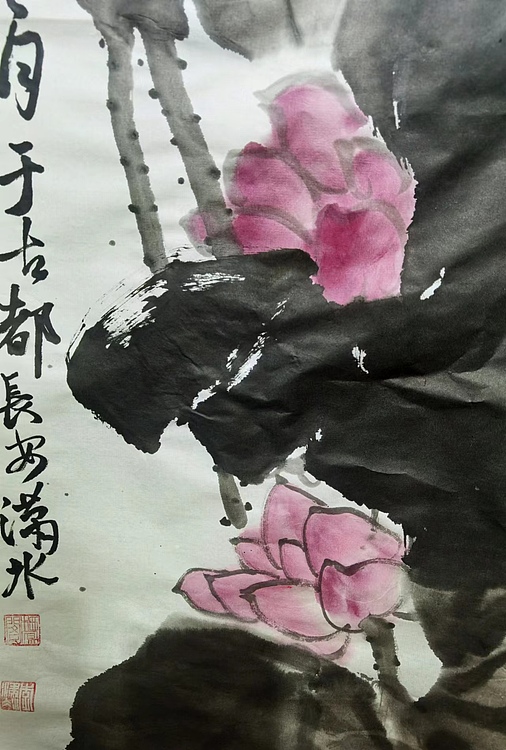 月于古都長安潇水